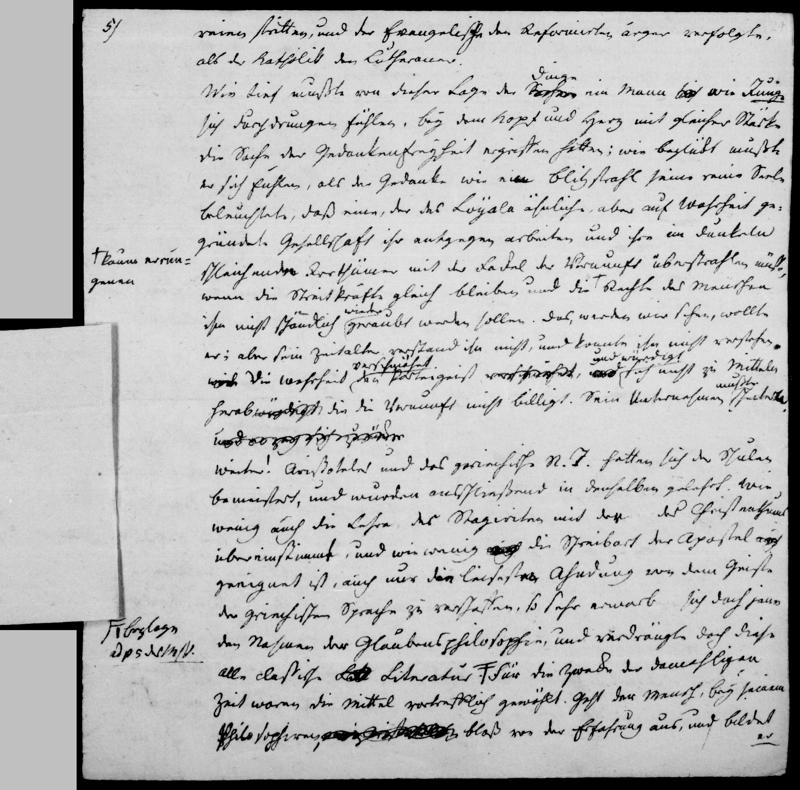 5/
reinen stritten, und der Evangelische den Reformirten ärger verfolgte,
als der Katholik den Lutheraner.
Wie tief mußte von dieser Lage der Dinge ein Mann wie Jungius
sich durchdrungen fühlen, bey dem Kopf und Herz mit gleicher Stärke
die Sache der Gedankenfreyheit ergriffen hatten; wie beglückt mußte
er sich fühlen, als der Gedanke wie ein Blitzstrahl seine reine Seele
beleuchtete, daß eine, der des Loyola ähnliche, aber auf Wahrheit ge=
gründete Gesellschaft ihr entgegen arbeiten und ihre im Dunkeln
schleichenden Irrthümer mit der Fackel der Vernunft überstrahlen müsse,
† kaum errun=
genen
wenn die Streitkräfte gleich bleiben und die † Rechte des Menschen
ihm nicht schändlich wieder geraubt werden sollen. Das, werden wir sehen, wollte
er; aber sein Zeitalter verstand ihn nicht, und konnte ihn nicht verstehen.
Die Wahrheit verschmähet den Parteigeist, und würdigt sich nicht zu Mitteln
herab die die Vernunft nicht billigt. Sein Unternehmen mußte scheitern.
Weiter! Aristoteles und das griechische N. T. hatten sich der Schulen
bemeistert, und wurden ausschließend in denselben gelehrt. Wie
wenig auch die Lehre des Stagiriten mit der des Christenthums
übereinstimmt, und wie wenig die Schreibart der Apostel auch
geeignet ist, auch nur die leiseste Ahndung von dem Geiste
der griechischen Sprache zu verschaffen, so sehr erwarb sich doch jene
den Nahmen der Glaubensphilosophie, und verdrängte doch diese
Beylage
alle classische Literatur ‡ Für die Zwecke der damahligen
Zeit waren die Mittel vortrefflich gewählt. Geht der Mensch, bey seinem
Philosophiren, bloß von der Erfahrung aus, und bildet
er